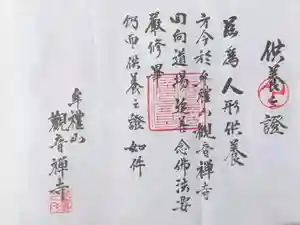 供養之證
茲為人形供養
方今於牟禮山觀音禪寺
回向道場 念佛法要
嚴修畢
仍而供養之證如件
牟禮山
觀音禪寺